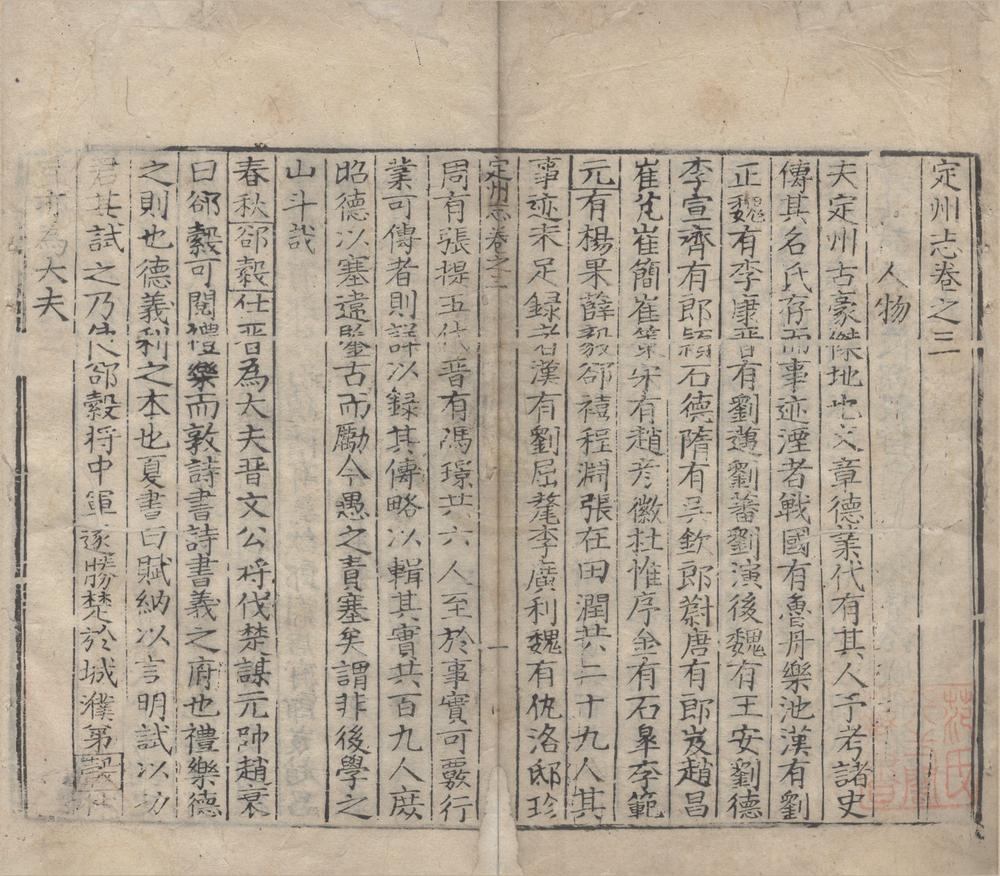 定州志卷之三
人物
夫定州古豪傑地也文章德業代有其人予考諸史
傳其名氏存而事迹湮者戰國有魯丹樂池漢有劉
正魏有李康晉有劉邁劉蕃劉演後魏有王安劉德
李宣齊有郎穎石德隋有吳欽郎蔚唐有郎岌趙昌
崔芃崔簡崔策宋有趙彥徽杜惟序金有石皋李範
元有楊果薛毅邵禧程淵張在田潤共二十九人其
事迹未足録者漢有劉屈氂李廣利魏有仇洛邸珍
定州志卷之三 一
周有張提五代晉有馮璟共六人至於事實可覈行
業可傳者則詳以録其傳略以輯其實共百九人庶
昭德以塞違鑒古而勵今愚之責塞矣謂非後學之
山斗哉
春秋郤縠仕晋為大夫晋文公將伐楚謀元帥趙衰
曰郤縠可閱禮樂而敦詩書詩書義之府也禮樂德
之則也德義利之本也夏書曰賦納以言明試以功
君其試之乃使郤縠將中軍遂勝楚於城濮第縠仕
晉亦為大夫